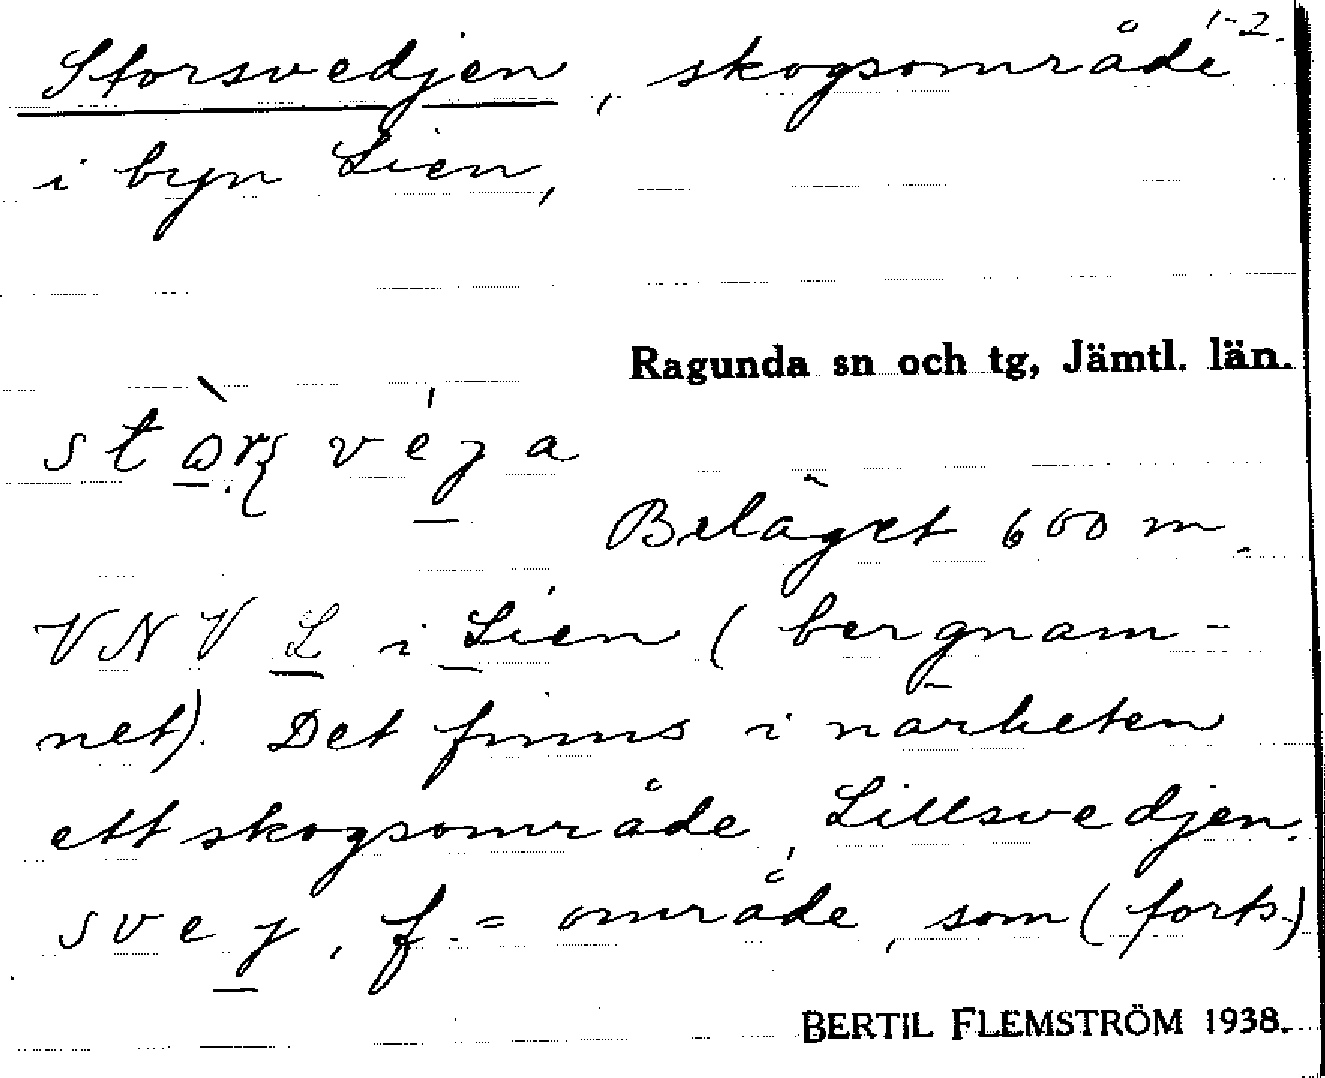 1-2.
Storsvedjen, skogsområde
i byn Lien,
Ragunda sn och tg, Jämtl. län.
Beläget 600 m.
VNV L i Lien (bergnam-
net). Det finns i närheten
ett skogsområde, Lillsvedjen.
svej, f. = område, som (forts.)
BERTIL FLEMSTRÖM 1938.